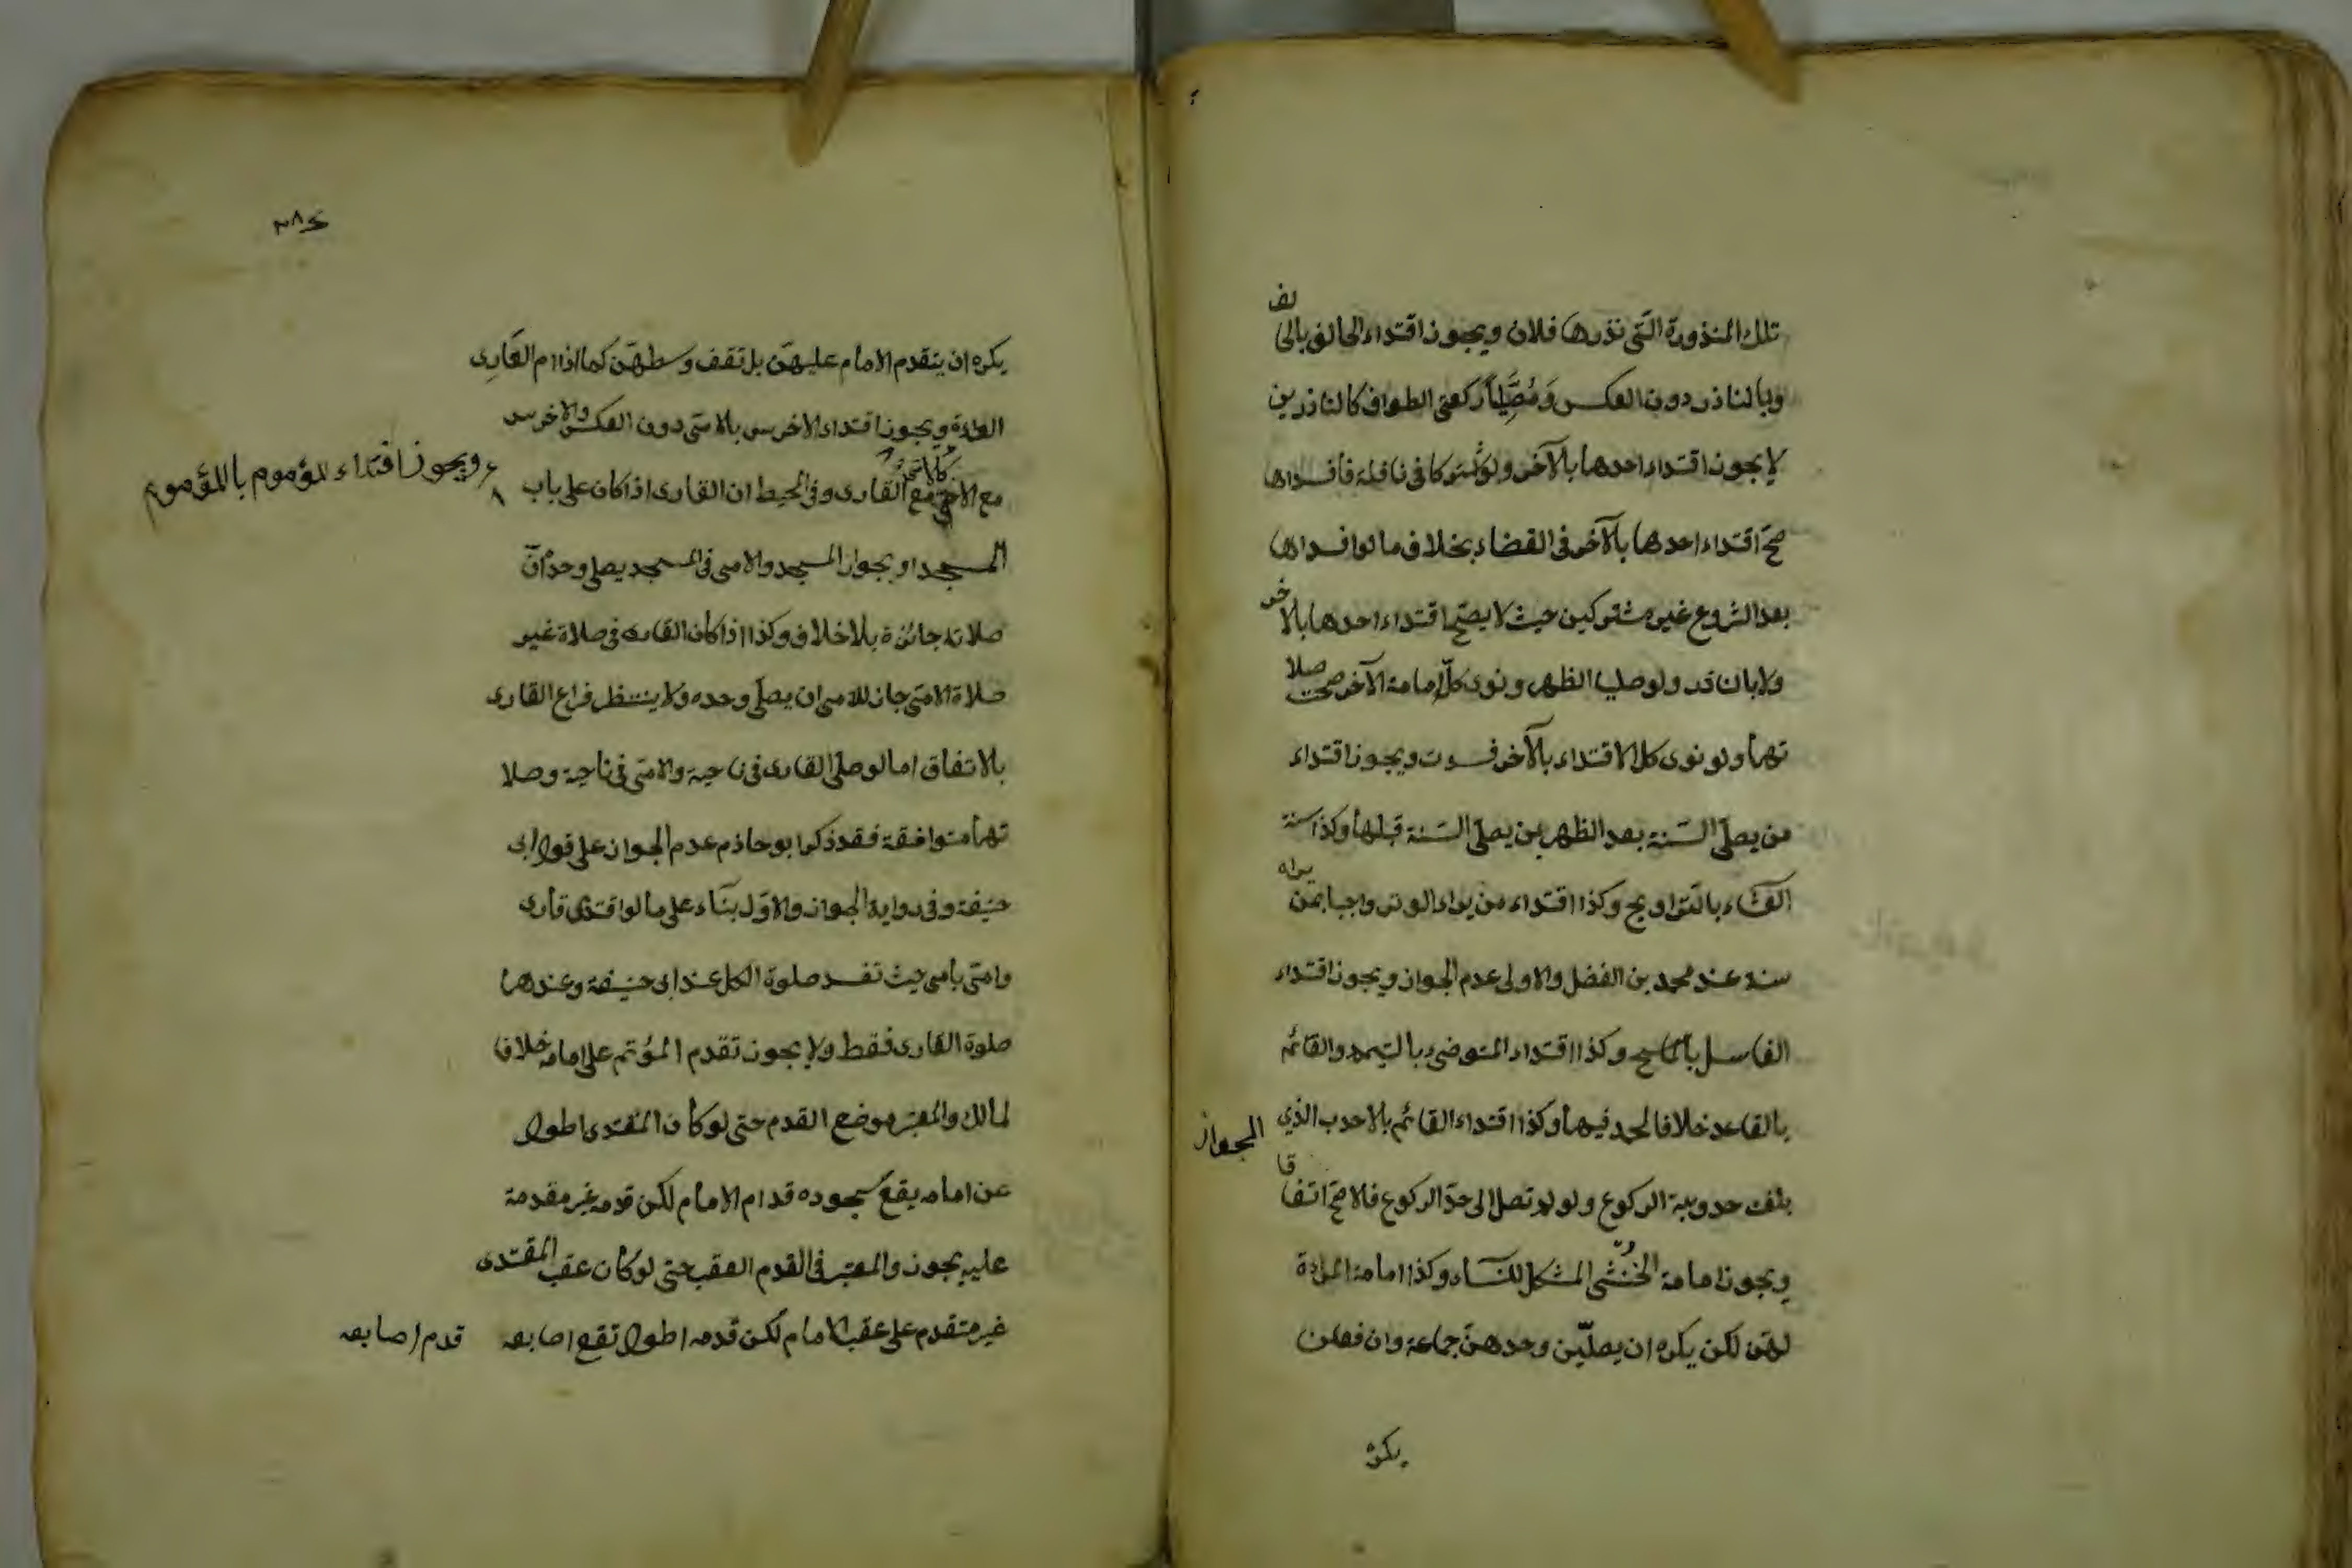 تلك المنذورة التي نذرها فلان ويجوز اقتداء الحالف بالحالف
وبالناذر دون العكس ومُصَلِّيَا ركعتي الطواف كالناذرين
لا يجوز اقتداء احدهما بالآخر ولو اشتركا في نافلة فأفسداها
صحّ اقتداء احدهما بالآخر في القضاء بخلاف ما لو افسداها
بعد الشروع غير مشتركين حيث لا يصحّ اقتداء احدهما بالآخر
ولا بالناذر ولو صليا الظهر ونوى كلّ امامة الآخر صحت صلا
تهما ولو نوى كل الاقتداء بالآخر فسدت ويجوز اقتداء
من يصلّي السّنة بعد الظهر بمن يصلّي السّنة قبلها وكذا سنة
العشاء بالتراويح وكذا اقتداء من يراء الوتر واجبا بمن يراه
سنة عند محمد بن الفضل والاولى عدم الجواز ويجوز اقتداء
الغاسل بالماسح وكذا اقتداء المتوضئ بالتيمم والقائم
بالقاعد خلافا لمحمد فيهما وكذا اقتداء القائم بالاحدب الذي
الجواز
بلغت حدوبية الركوع ولو لم تصل الى حدّ الركوع فالاصحّ اتفاقا
ويجوز امامة الخنثى المشكل للنساء وكذا امامة المراءة
لهنّ لكن يكره ان يصلّين وحدهنّ جماعة وان فعلن
يكره
يكره ان يتقدم الامام عليهنّ بل تقف وسطهنّ كما اذا ام العَارِى
العراة ويجوز اقتداء الاخرس بالامّي دون العكس والاخرس
مع الامّي مع القارى وفي المحيط ان القارى اذا كان على باب
ويجوز اقتداء المؤموم بالمؤموم
المسجد او بجوار المسجد والامى في المسجد يصلي وحده انّ
صلاته جائزة بلا خلاف وكذا اذا كان القارى في صلاة غير
صلاة الامّي جاز للامى ان يصلّي وحده ولا ينتظر فراغ القارى
بالاتفاق اما لو صلّى القارى في ناحية والامّى في ناحية وصلا
تهما متوافقة فقد ذكر ابو حازم عدم الجواز على قول ابى
حنيفة وفي رواية الجواز والاوّل بنّاء على ما لو اقتدى قارى
وامّي بامى حيث تفسد صلوة الكل عند ابى حنيفة وعندهما
صلوة القارى فقط ولا يجوز تقدم المؤتم على امامه خلافا
لمالك والمعتبر موضع القدم حتى لو كان المقتدى اطول
عن امامه يقع سجوده قدام الامام لكن قدمه غير مقدمة
عليه يجوز والمعتبر في القدم العقب حتى لو كان عقب المقتدى
غير متقدم على عقب الامام لكن قدمه اطول تقع اصابعه قدم اصابعه